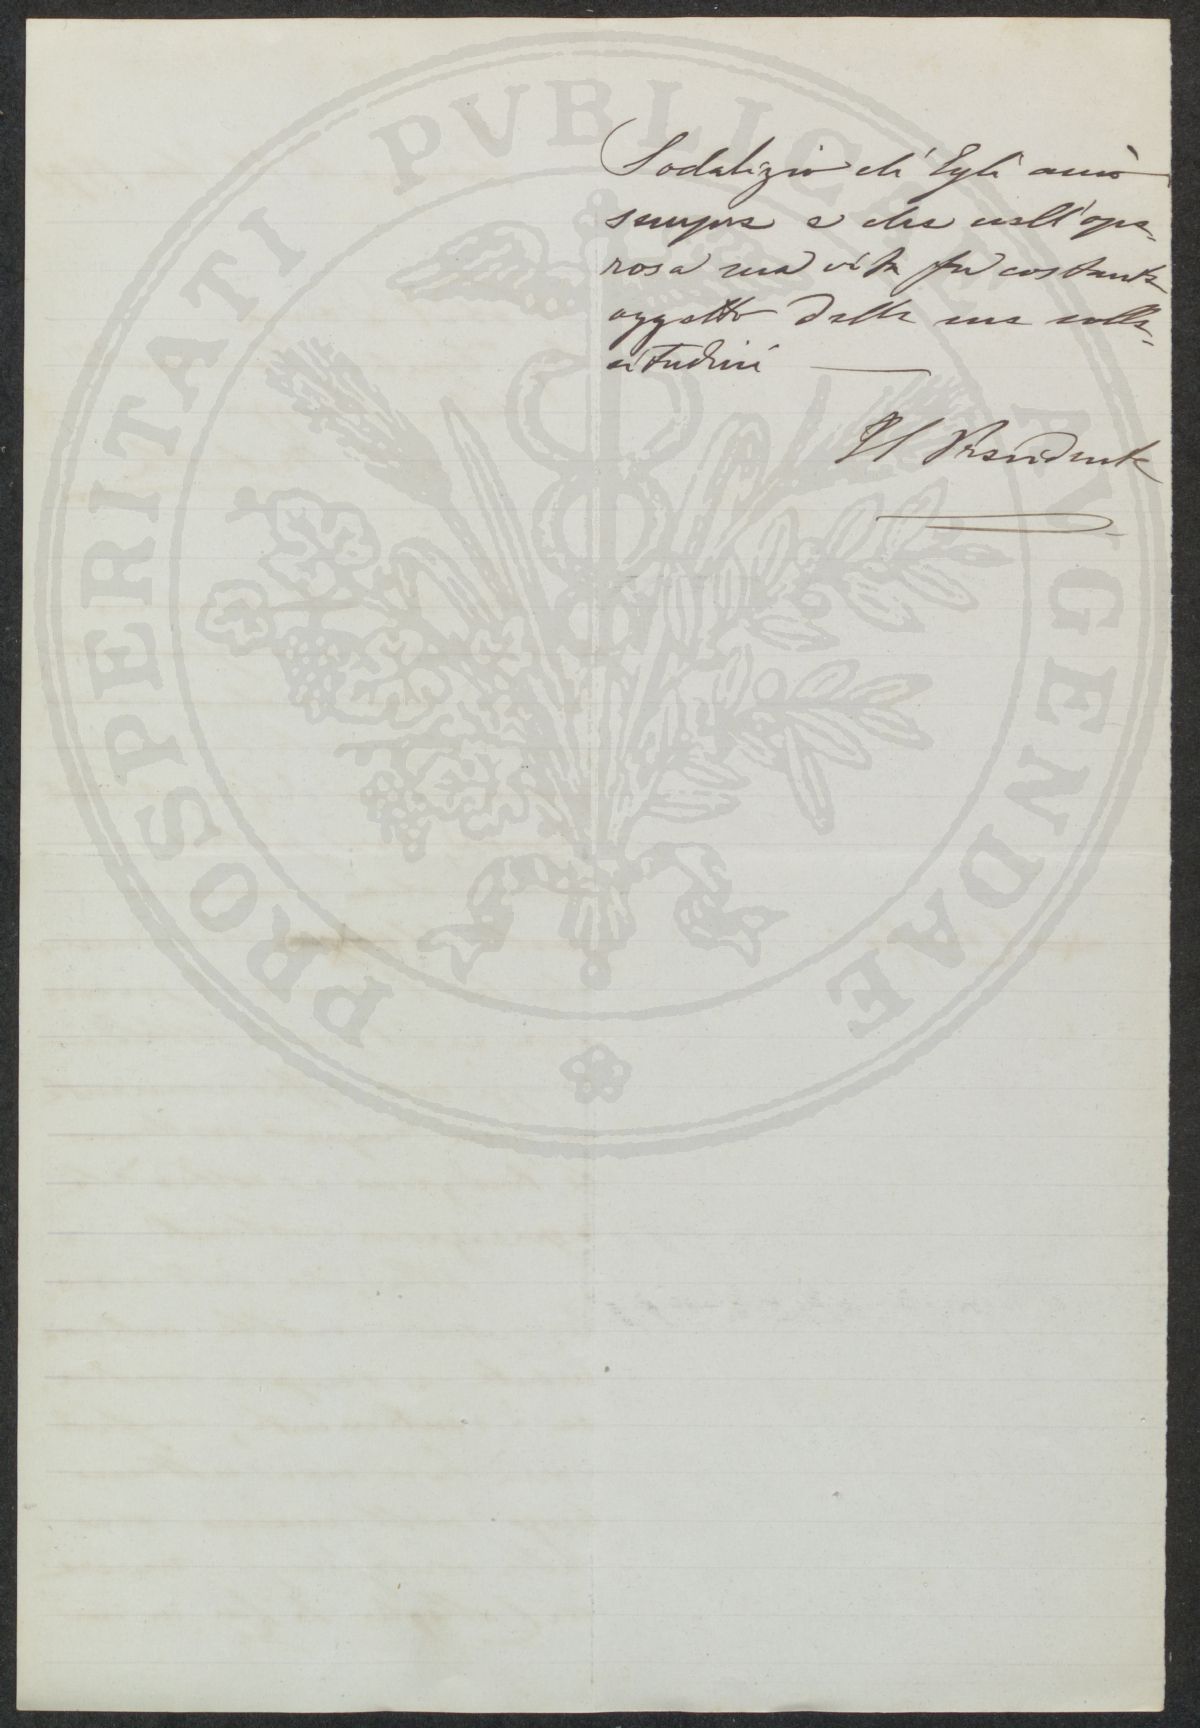 Sodalizio ch'Egli amò
sempre e che nell'ope-
rosa sua vita fu costante
oggetto delle sue solle-
citudini
Il Presidente
PROSPERITATI PVBLICAE AVGENDAE